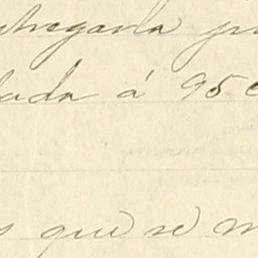 ntregarla pr
lada á 950
s que se m